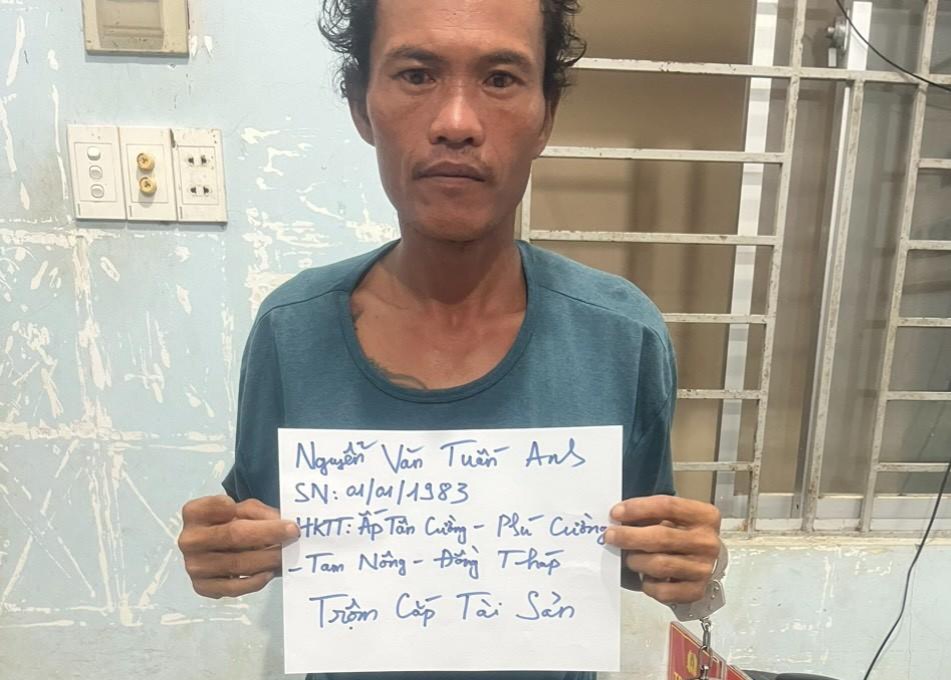 Nguyễn Văn Tuấn Anh
SN: 01/01/1983
HKTT: Ấp Tân Cường - Phú Cường
- Tam Nông - Đồng Tháp
Trộm Cắp Tài Sản